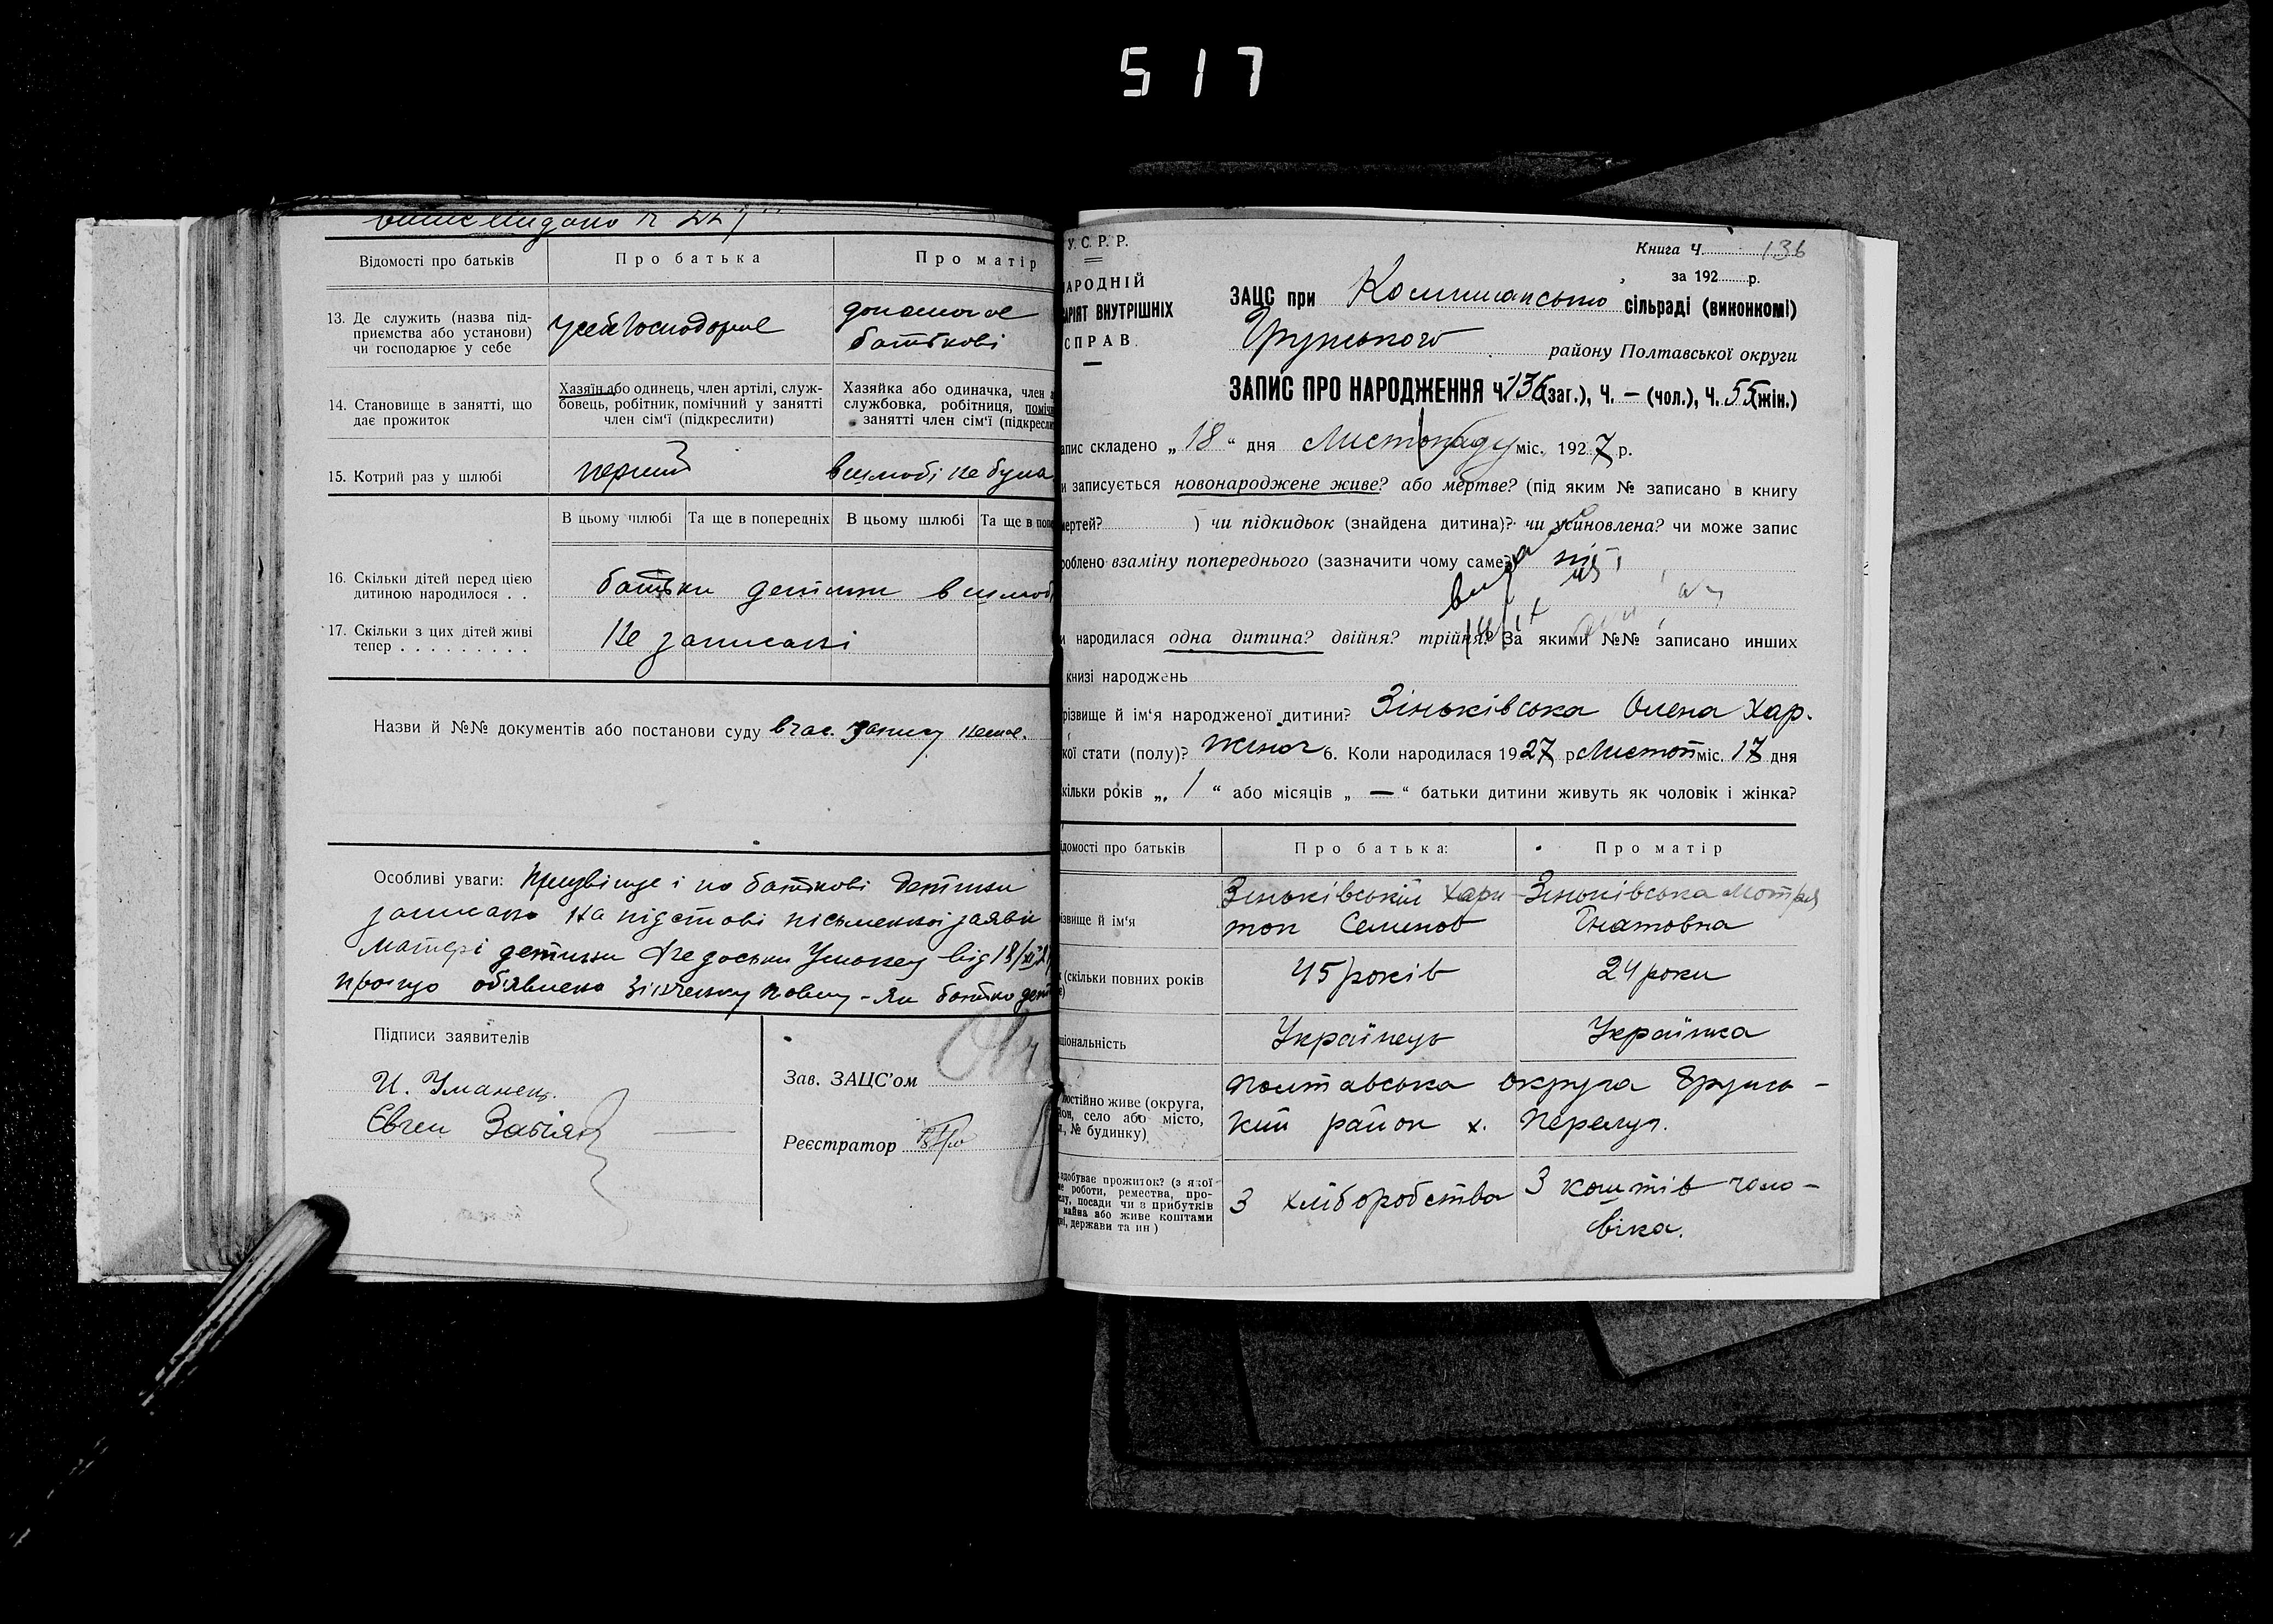 517
Відомості про батьків
Про батька
Про матір
13. Де служить (назва під-
приємства або установи)
чи господарює у себе
у себе господарює
допомогає
батькові
14. Становище в занятті, що
дає прожиток
Хазяїн або одинець, член артілі, служ-
бовець, робітник, помічний у занятті
член сім'ї (підкреслити)
Хазяйка або одиначка, член
службовка, робітниця,
занятті член сім'ї
15. Котрий раз у шлюбі
перший
в шлюбі не була
В цьому шлюбі
Та ще в попередніх
В цьому шлюбі
Та ще в
16. Скільки дітей перед цією
дитиною народилося . .
батьки детини в шлюбі
17. Скільки з цих дітей живі
тепер . . . . . . . . .
Не записані
Назви й №№ документів або постанови суду в час. запису немає.
Особливі уваги: Призвіще і по батькові детини
записано на підставі письменної заяви
матері детини від 18/XI
про що обявлено як батько
Підписи заявителів
И. Уманець.
Євген
Зав. ЗАЦС'ом
Реєстратор
У. С. Р. Р.
АРОДНІЙ
АРІЯТ ВНУТРІШНІХ
СПРАВ
Книга Ч. 136
за 192 р.
ЗАЦС при сільраді (виконкомі)
Грунського району Полтавської округи
ЗАПИС ПРО НАРОДЖЕННЯ Ч. 136 (заг.), Ч. — (чол.), Ч. 55 (жін.)
апис складено „ 18 “ дня Листопаду міс. 1927 р.
и записується новонароджене живе? або мертве? (під яким № записано в книгу
мертей? ) чи підкидьок (знайдена дитина)? чи усиновлена? чи може запис
роблено взаміну попереднього (зазначити чому саме?) ні
и народилася одна дитина? двійня? трійня? За якими №№ записано инших
книзі народжень
різвище й ім'я народженої дитини? Зіньківська Олена Хар.
кої стати (полу)? жіноч 6. Коли народилася 1927 р Листоп міс. 17 дня
кільки років „ 1 “ або місяців „ — “ батьки дитини живуть як чоловік і жінка?
ідомості про батьків
Про батька:
Про матір
різвище й ім'я
Зіньківський Хари-
тон Семенов
Зіньківська Мотря
Гнатовна
(скільки повних років
45 років
24 роки
ціональність
Українець
Українка
постійно живе (округа,
йон, село або місто,
№ будинку)
Полтавська округа Грунсь-
кий район х.
здобуває прожиток? (з якої
е роботи, ремества, про-
посади чи з прибутків
майна або живе коштами
держави та ин)
З хліборобства
З коштів чоло-
віка.